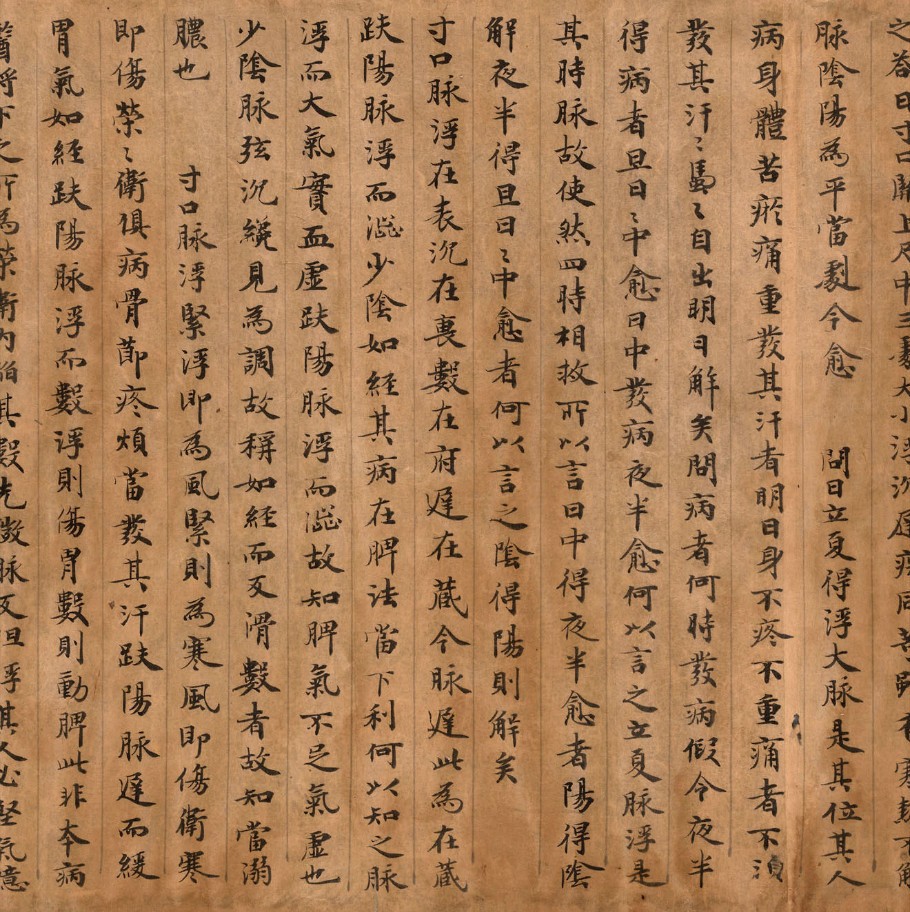 之答曰寸口關上尺中三處大小浮沉遲疾同等雖有寒熱不解
脉陰陽為平當劇今愈 問曰立夏得浮大脉是其位其人
病身體苦疼痛重發其汗者明日身不疼不重痛者不須
發其汗〻濈〻自出明日解矣問病者何時發病假令夜半
得病者旦日〻中愈日中發病夜半愈何以言之立夏脉浮是
其時脉故使然四時相救所以言日中得夜半愈者陽得陰
解夜半得旦日〻中愈者何以言之陰得陽則解矣
寸口脉浮在表沉在裏數在府遲在蔵今脉遲此為在蔵
趺陽脉浮而澁少陰如經其病在脾法當下利何以知之脉
浮而大氣實血虛趺陽脉浮而澁故知脾氣不足氣虛也
少陰脉弦沉纔見為調故稱如經而反滑數者故知當溺
膿也 寸口脉浮緊浮即為風緊則為寒風即傷衛寒
即傷榮〻衛俱病骨節疼煩當發其汗趺陽脉遲而緩
胃氣如經趺陽脉浮而數浮則傷胃數則動脾此非本病
醫將下之所為榮衛內陷其數先微脉反但浮其人必堅氣噫